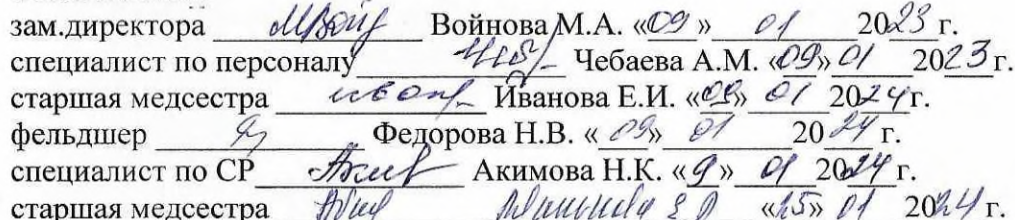 зам.директора Войнова М.А. «09» 01 2023 г.
специалист по персоналу Чебаева А.М. «09» 01 2023 г.
старшая медсестра Иванова Е.И. «09» 01 2024 г.
фельдшер Федорова Н.В. « 09» 01 20 24 г.
специалист по СР Акимова Н.К. «9» 01 2024 г.
старшая медсестра «15» 01 2024 г.